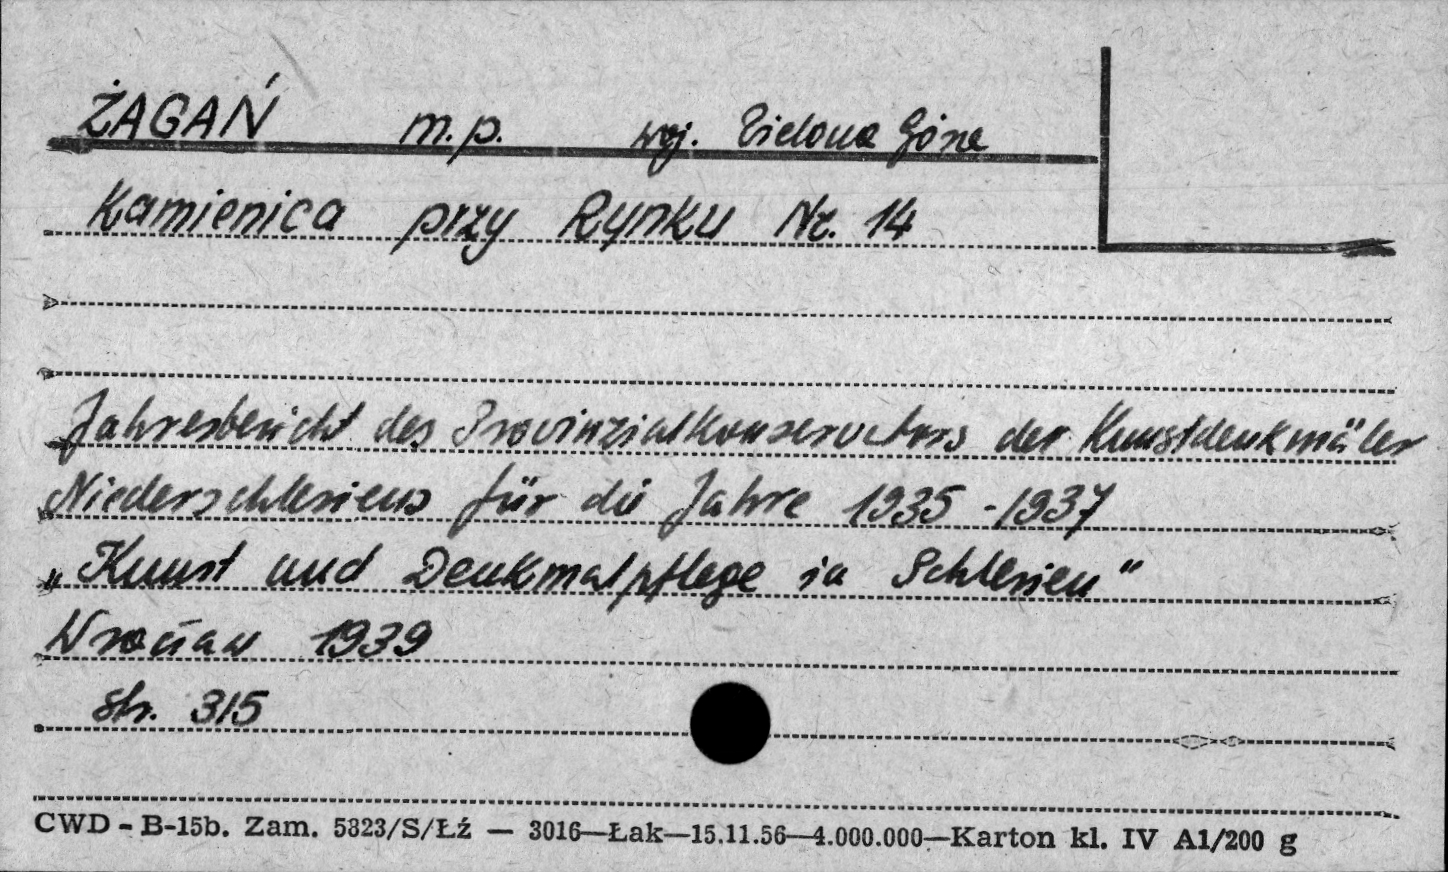 ŻAGAŃ m.p. woj. Zielona Góra
Kamienica przy Rynku Nr. 14
Jahresbericht des Provinzialkonservators der Kunstdenkmäler
Niederschlesiens für die Jahre 1935-1937
„Kunst und Denkmalpflege in Schlesien"
Wrocław 1939
Str. 315
CWD - B-15b. Zam. 5823/S/Łź — 3016—Łak—15.11.56—4.000.000—Karton kl. IV A1/200 g